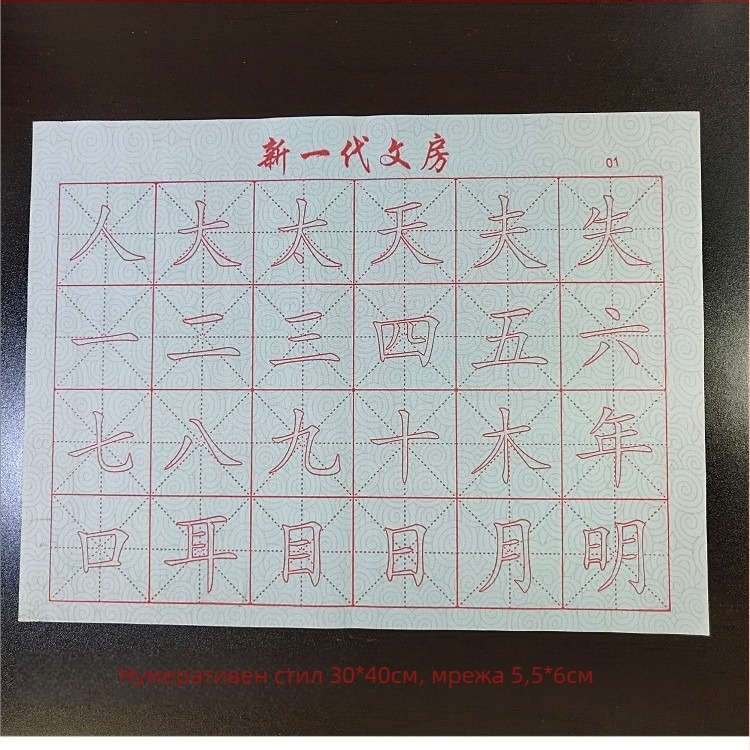 新一代文房
01
人大太天夫失
一二三四五六
七八九十木年
口耳目日月明
Нумеративен стил 30*40см, мрежа 5,5*6см